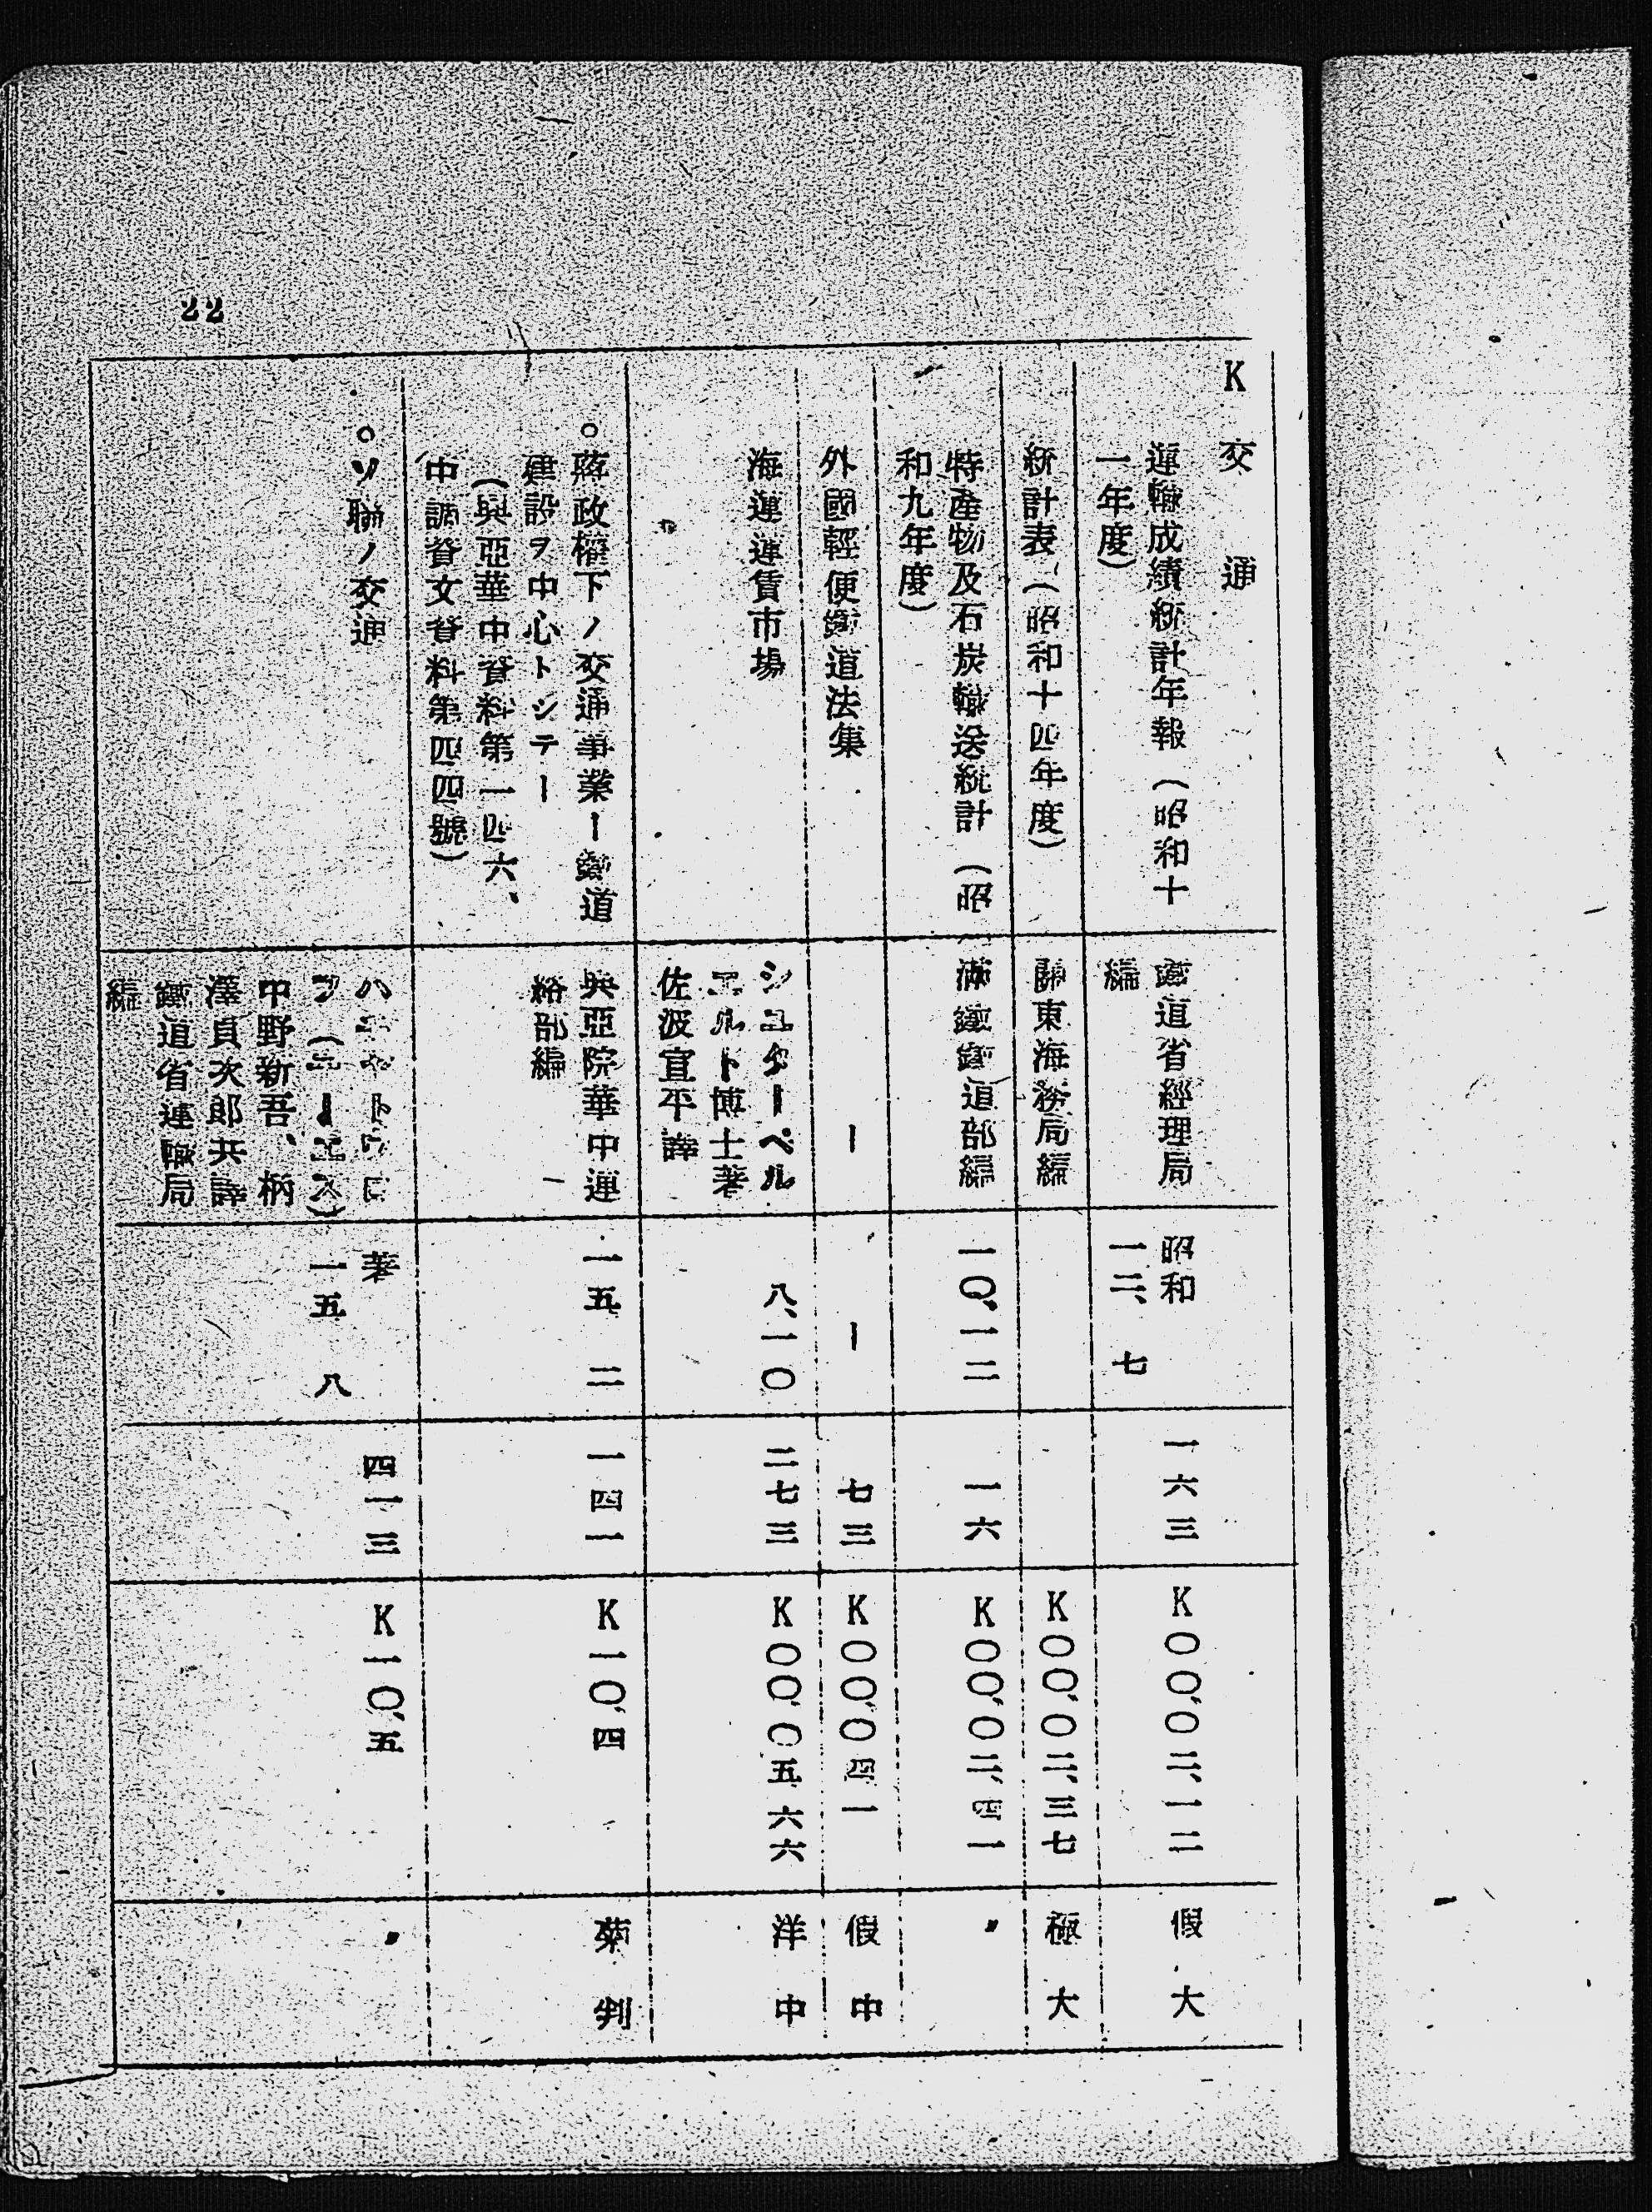 22
K 交通
運輸成績統計年報（昭和十
一年度）
鐵道省經理局
編
昭和
一二、七
一六三
K〇〇、〇二、一二
假大
統計表（昭和十四年度）
關東海務局編
K〇〇、〇二、三七
極大
特產物及石炭輸送統計（昭
和九年度）
滿鐵鐵道部編
一〇、一二
一六
K〇〇、〇二、四一
〃
外國輕便鐵道法集
ー
ー
七三
K〇〇、〇四一
假中
海運運賃市場
シユターペル
エルト博士著
佐波宣平譯
八、一〇
二七三
K〇〇、〇五六六
洋中
○蔣政權下ノ交通事業ー鐵道
建設ヲ中心トシテー
（興亞華中資料第一四六、
中調資文資料第四四號）
興亞院華中連
絡部編
一五 二
一四一
K一〇、四
菊判
○ソ聯ノ交通
ハチヤトウロ
フ（エーエス）
著
中野新吾、柄
澤貞次郎共譯
鐵道省運輸局
編
一五 八
四一三
K一〇、五
〃